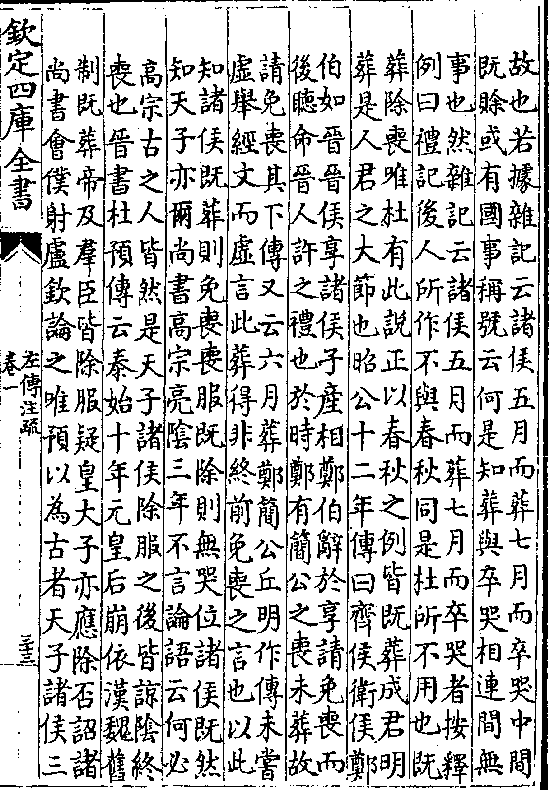 故也若據雜記云諸侯五月而葬七月而卒哭中間
既賒或有國事稱號云何是知葬與卒哭相連間無
事也然雜記云諸侯五月而葬七月而卒哭者按釋
例曰禮記後人所作不與春秋同是杜所不用也既
葬除喪唯杜有此說正以春秋之例皆既葬成君明
葬是人君之大節也昭公十二年傳曰齊侯衛侯鄭
伯如晉晉侯享諸侯子產相鄭伯辭於享請免喪而
後聽命晉人許之禮也於時鄭有簡公之喪未葬故
請免喪其下傳又云六月葬鄭簡公丘明作傳未嘗
虛舉經文而虛言此葬得非終前免喪之言也以此
知諸侯既葬則免喪喪服既除則無哭位諸侯既然
知天子亦爾尚書高宗亮陰三年不言論語云何必
高宗古之人皆然是天子諸侯除服之後皆諒陰終
喪也晉書杜預傳云泰始十年元皇后崩依漢魏舊
制既葬帝及羣臣皆除服疑皇大子亦應除否詔諸
尚書會僕射盧欽論之唯預以為古者天子諸侯三
欽定四庫全書
左傳注疏
卷一
三十三